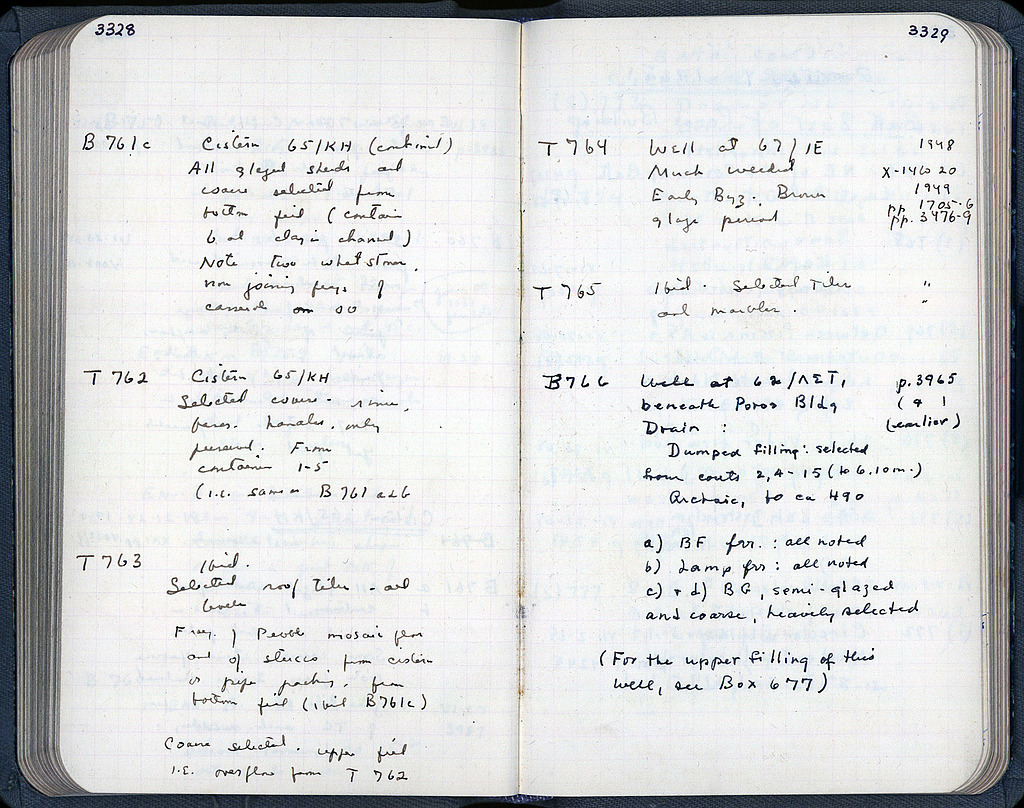 3328
B 761c Cistern 65/KH (continued)
All glazed sherds and
coarse selected from
bottom fill (contain
6 and clay in channel)
Note two whetstones,
non joining frags of
casserole on so
T 762 Cistern 65/KH
Selected coarse - rims,
bases, handles, only
preserved. From
container 1-5
(i.e. same as B 761 a & b
T 763 Ibid.
Selected roof tiles - and
Frag. of Pebble mosaic floor
and of stucco from cistern
or pipe packing, from
bottom fill (ibid B761c)
Coarse selected. upper fill
I.E. overflow from T 762
3329
T 764 Well at 67/IE 1948
Much weeded X-146 20
Early Byz. Brown 1949
glaze period pp. 1705-6
pp. 3476-9
T 765 Ibid. Selected tiles "
and marbles. "
B766 Well at 62/ΛΣΤ, p. 3965
beneath Poros Bldg (& 1
Drain : (earlier)
Dumped filling: selected
from conts 2, 4-15 (to 6.10 m.)
Archaic, to ca 490
a) BF frr. : all noted
b) Lamp frr : all noted
c) + d) BG, semi-glazed
and coarse, heavily selected
(For the upper filling of this
well, see Box 677)